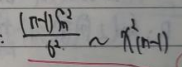 : (n-1)Sn² / 6² ~ χ²(n-1)